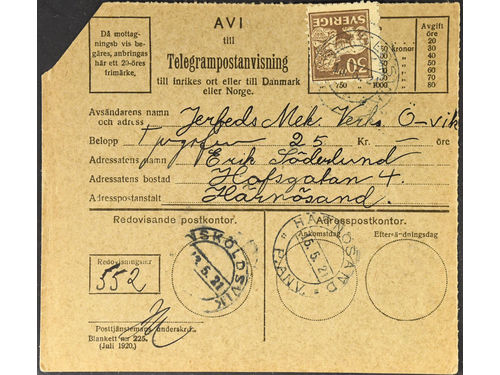 Då mottag-
ningsb vis be-
gäres, anbringas
här ett 20-öres
frimärke.
AVI
till
Telegrampostanvisning
till inrikes ort eller till Danmark
eller Norge.
SVERIGE
30
kronor
750 1000
Avgift
öre
20
30
40
50
60
70
80
Avsändarens namn
och adress Jerfeds Mek. Verks. Ö-vik
Belopp Tjugofem 25 Kr. — öre
Adressatens namn Erik Söderlund
Adressatens bostad Hofsgatan 4.
Adresspostanstalt Härnösand.
Redovisande postkontor.
Adresspostkontor.
Ankomstdag
Efters-ä-dningsdag
Redovisningsnr
552
NSKÖLDSVIK
5.21
HÄRNÖSAND
5.21
* PÅANV. *
Posttjänstemans underskr.
Blankett nr 225.
(Juli 1920.)